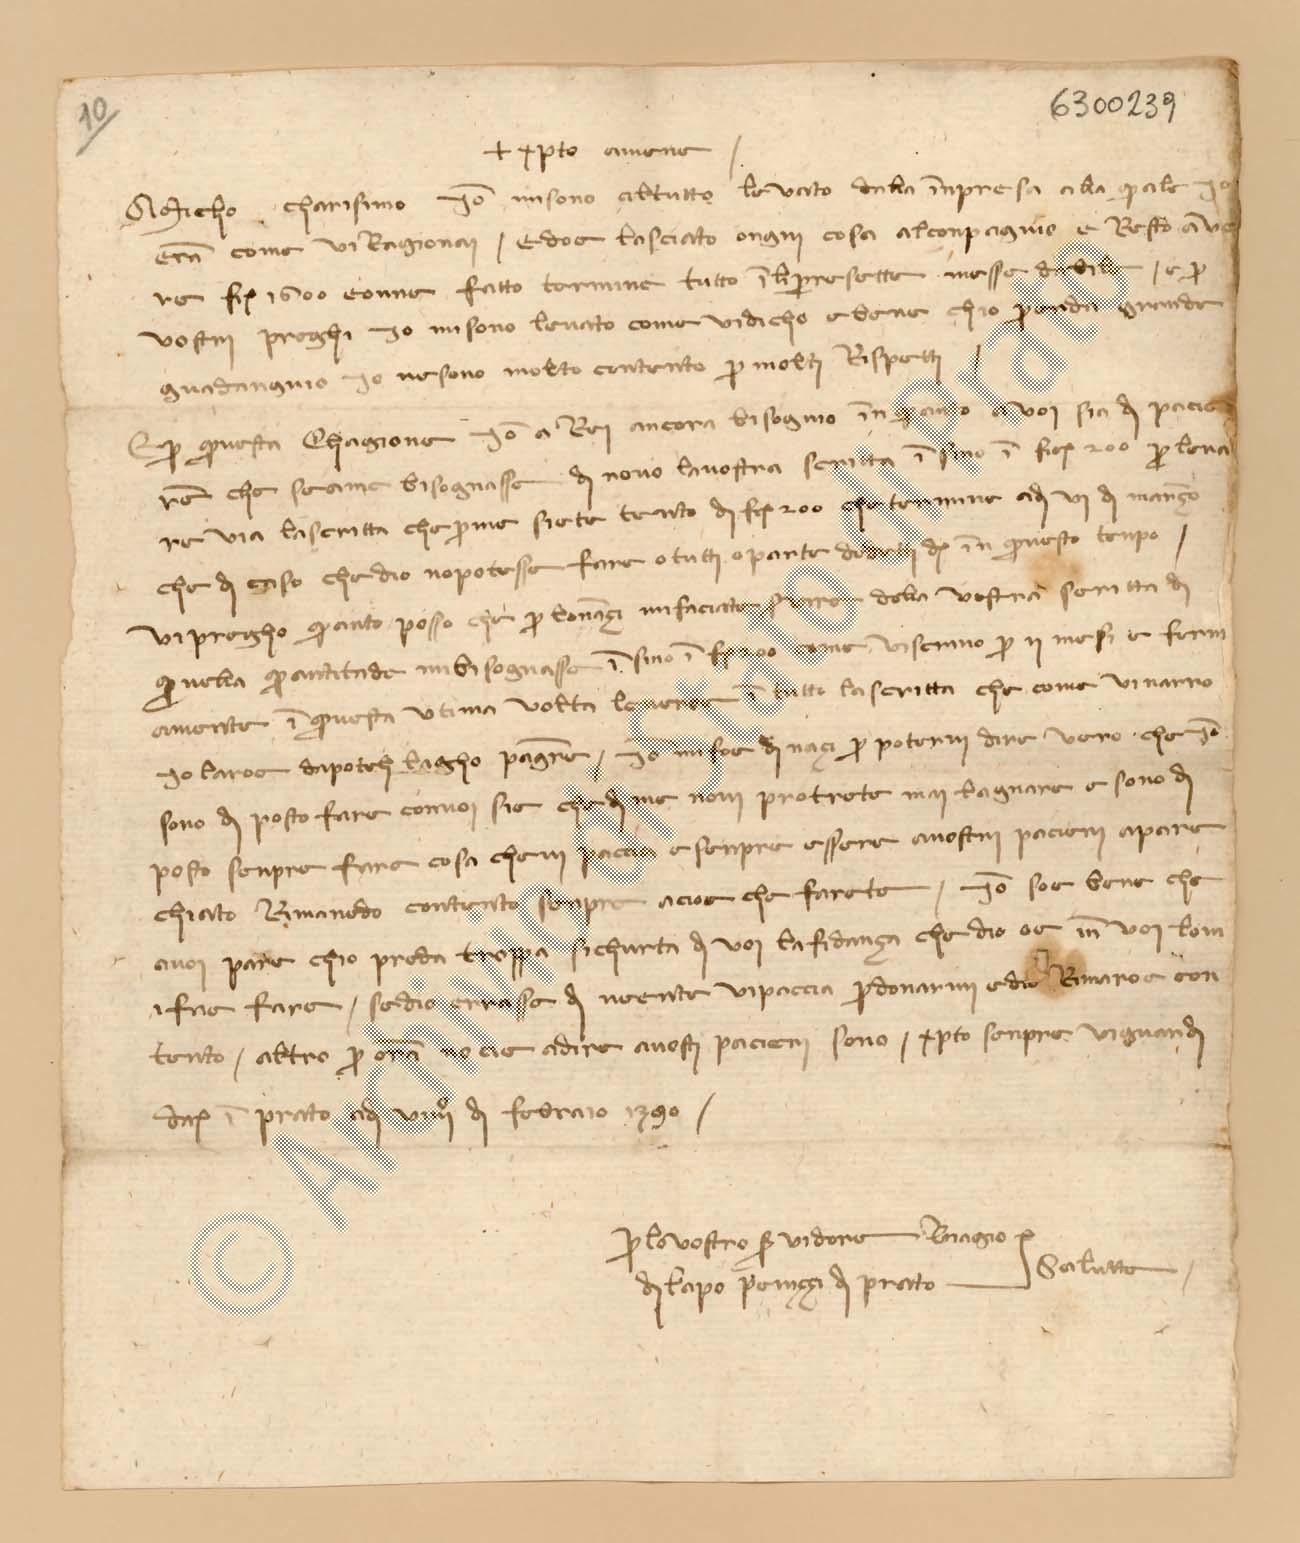 10
6300239
+ xpto amene /
Amicho charisimo io misono altutto levato dalla inpresa alla quale io
era come viRagionai / edoe lasciato ongni cosa alconpagnio e Resto ave
re fi 1600 eonne fatto termine tutto messe / e per
vostri preghi io misono levato come vidicho e bene chio perda grande
guadangnio io nesono molto contento per molti Rispetti /
E per questa Chagione io a Rei ancora bisognio in quanto a voi sia di pacie
re che seame bisognasse di novo lavostra scritta i sino i fi 200 per leva
re via lascritta che perme siete tento di fi 200 che termine adi VI di março
che di caso che dio nopotesse fare o tutti o parte in questo tenpo /
vi pregho quanto posso che per mifaciate della vostra scritta di
quella quantitade mibisognasse i sino i fi 200 come viscrivo per II mesi e ferm
amente i questa utima volta i tutto lascritta che come vinarro
io laroe io misoe per potervi dire vero che io
sono di posto fare convoi sie che di me novi potrete mai lagnare e sono di
posto senpre fare cosa chevi paccia e senpre essere avostri pacieri apare
chiato Rimanedo contento senpre acioe che farete / io soe bene che
avoi pare chio preda troppa sichurta di voi lafidança che dio oe in voi lom
i fae fare / sedio errasse di neente vipaccia perdonarmi edio Rimaroe con
tento / altro per ora nocie adire avosti pacieri sono / xpto senpre viguardi
data i prato adi VIIII di febraio 1390 /
per lo vostro servidore Biagio
di lapo di prato
Salutte
© Archivio di Stato di Prato